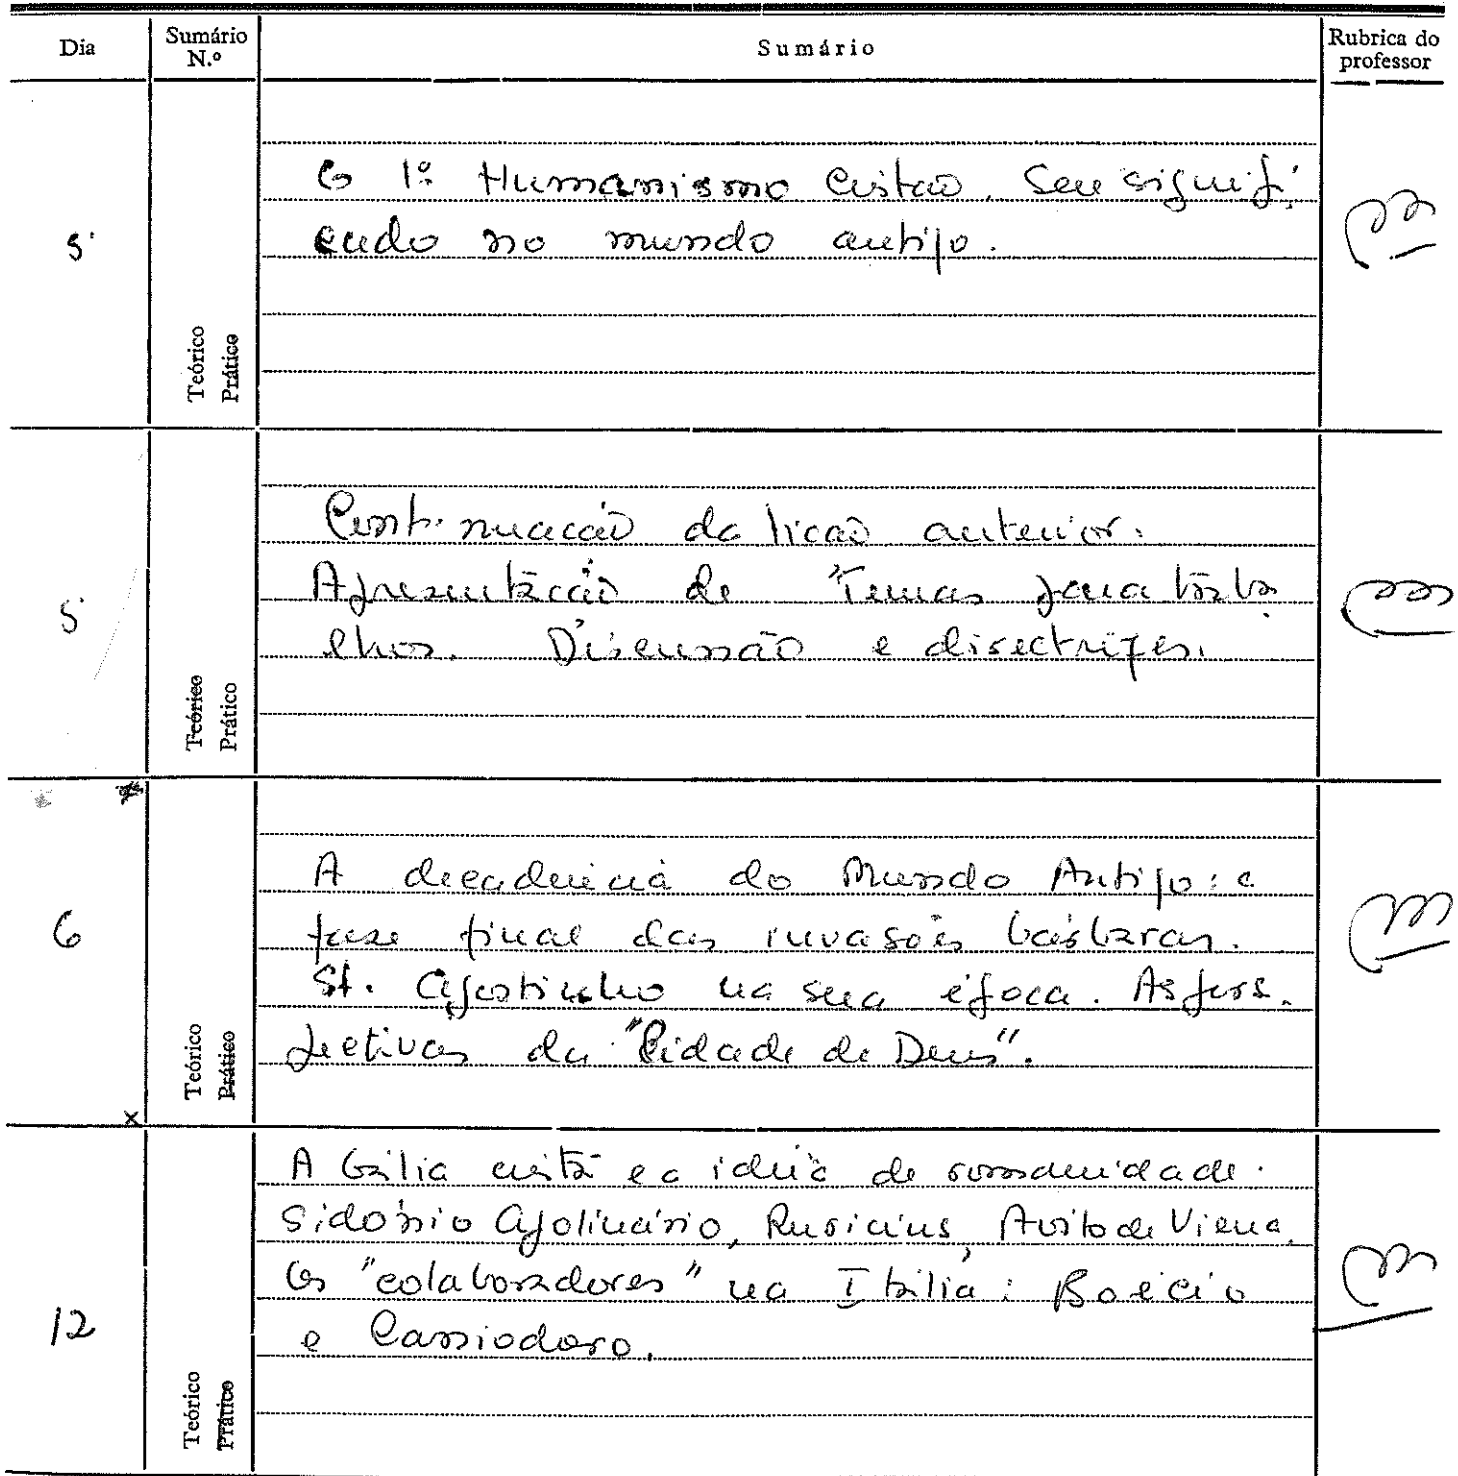 Dia Sumário N.º Sumário Rubrica do professor
O 1º Humanismo Cristão. Seu signifi-
5 cado no mundo antigo.
Teórico Prático
Continuação da lição anterior.
Apresentação de Temas para traba-
5 lhos. Discussão e directrizes.
Teórico Prático
A decadência do Mundo Antigo: a
6 fase final das invasões bárbaras.
St. Agostinho na sua época. As pers-
pectivas da "Cidade de Deus".
Teórico Prático
A Gália cristã e a ideia de romanidade.
Sidónio Apolinário, Ruricius, Avito de Viena.
Os "colaboradores" na Itália: Boécio
12 e Cassiodoro.
Teórico Prático